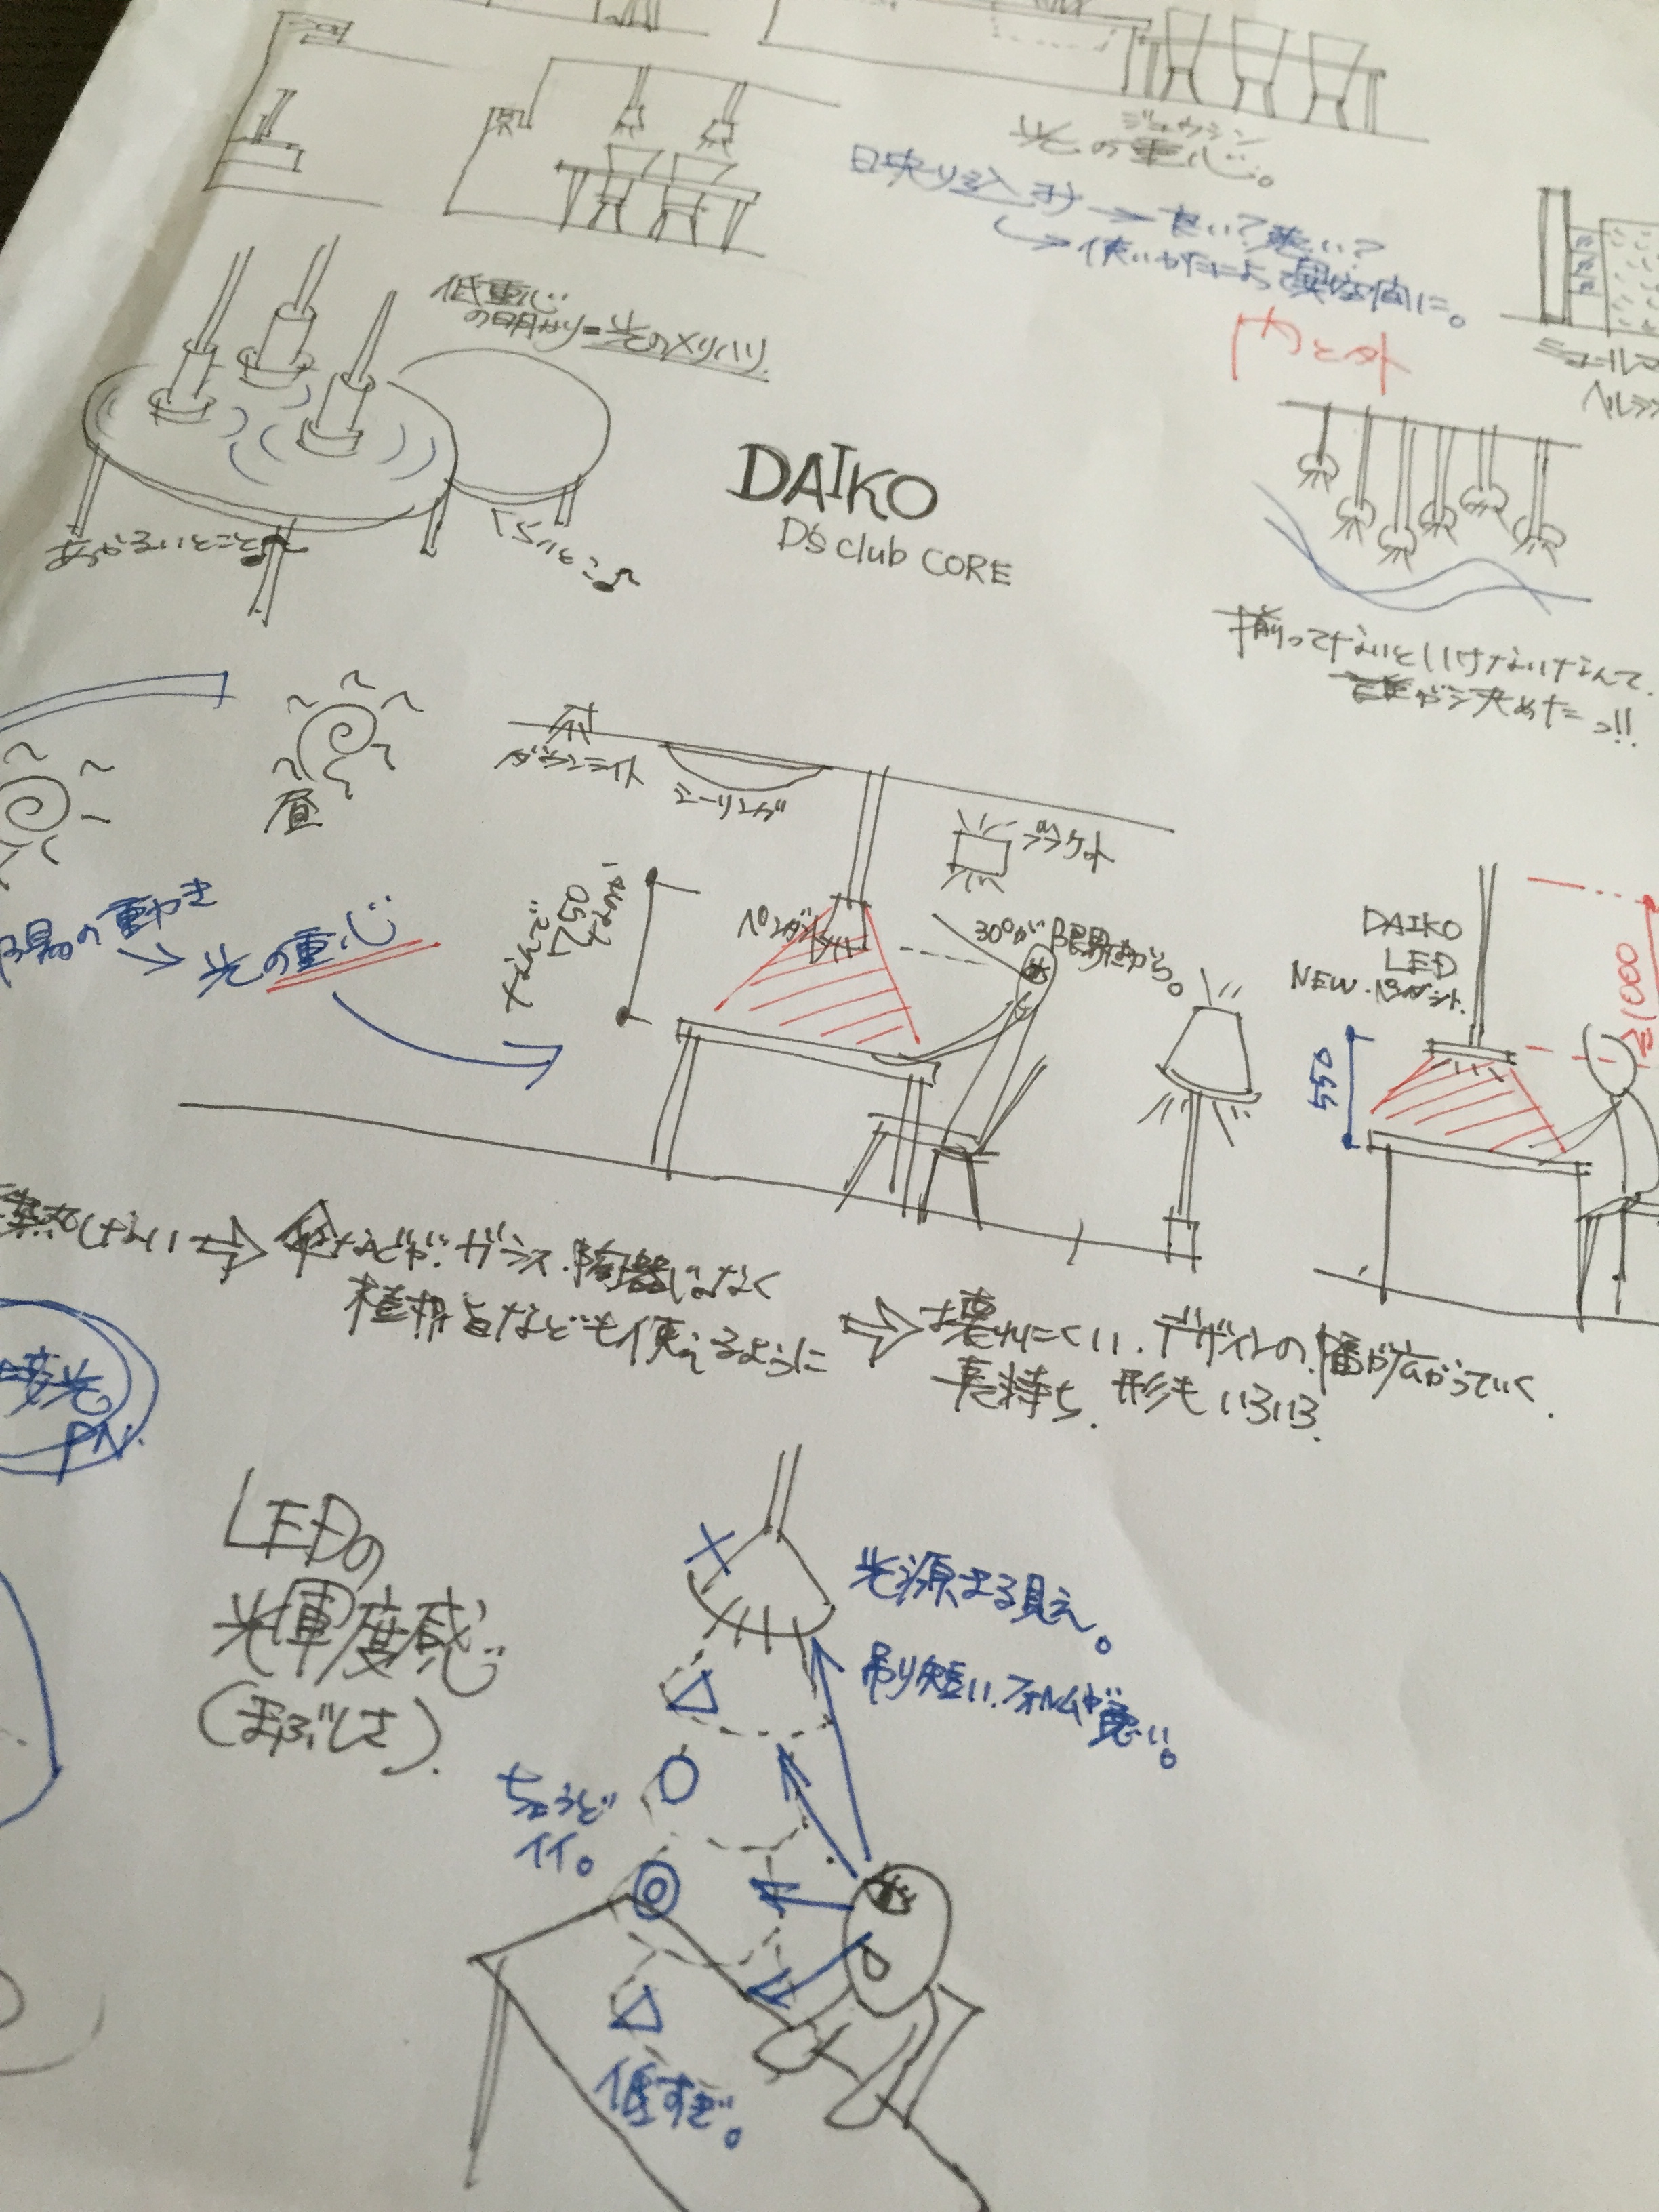 ジュウシン
光の重心。
日映り込み → 良い？悪い？
→ 使いかたによって異空間に。
低重心
の明かり=光のメリハリ
内と外
DAIKO
D's club CORE
あかるいところ♪
くらいところ♪
揃ってないといけないなんて、
誰が決めたっ!!
昼
ダウンライト
シーリング
ブラケット
ペンダント
30°が限界だから。
なんで
750
なのか？
太陽の動き
→ 光の重心
DAIKO
LED
NEW ペンダント
550
≧1000
集熱しない ⇨ 傘などが、ガラス、陶器じゃなく
植樹脂なども使えるように
⇨ 壊れにくい、デザインの幅が広がっていく
長持ち、形もいろいろ
光。
PN.
LEDの
光輝度感
(まぶしさ)
×
光源まる見え。
吊り短い、フォルムが悪い。
△
○
ちょうど
イイ。
◎
△
低すぎ。